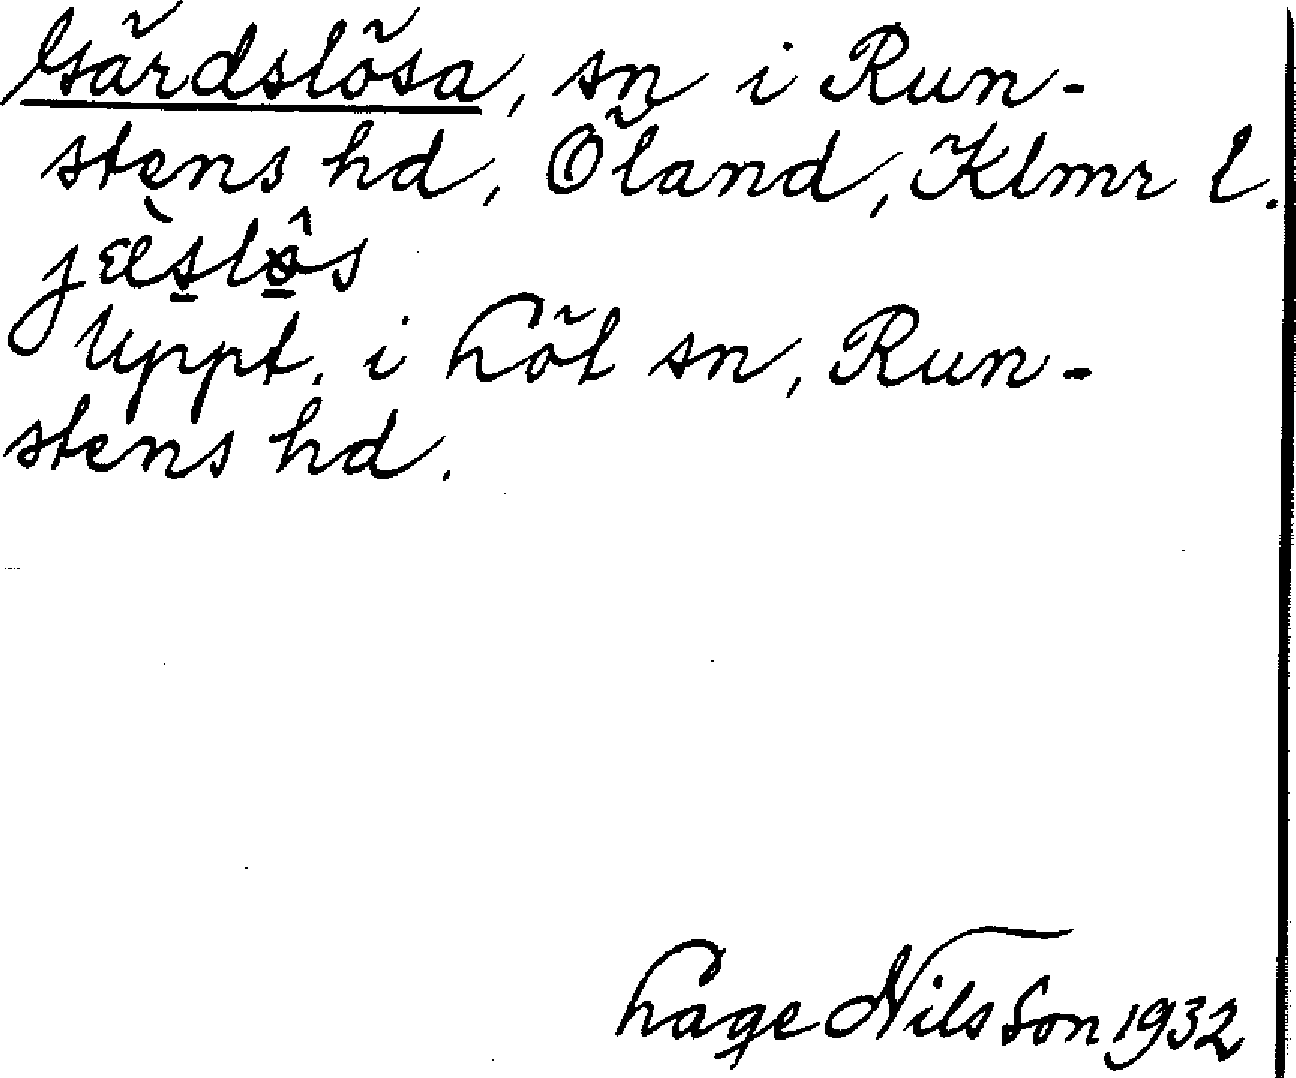 Gärdslösa, sn i Run-
stens hd, Öland, Klmr l.
jæ̀slôs
Uppt. i Löt sn, Run-
stens hd.
Lage Nilsson 1932